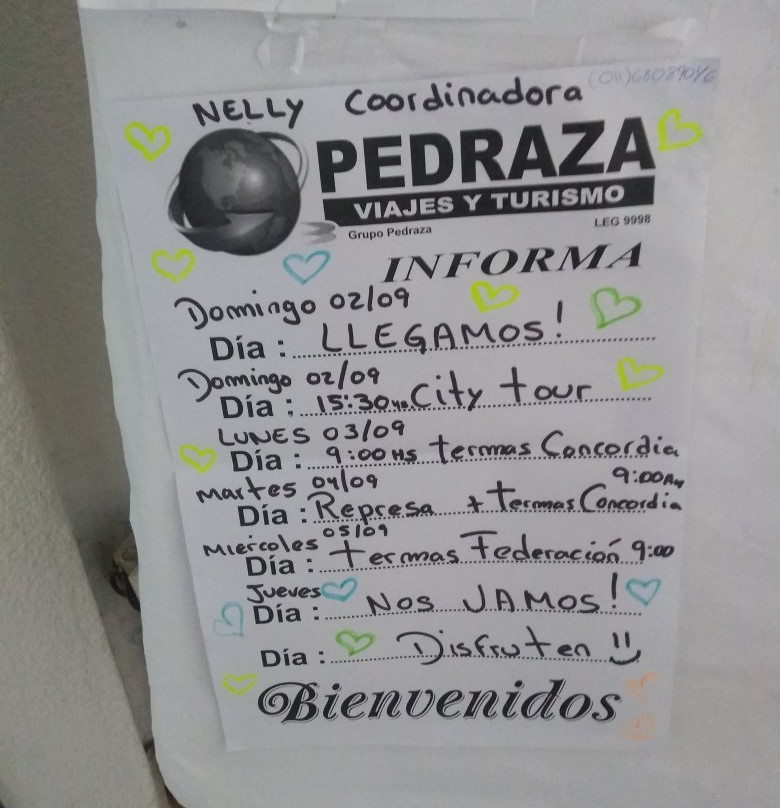 (011)68089046
NELLY Coordinadora
PEDRAZA
VIAJES Y TURISMO
Grupo Pedraza LEG 9998
INFORMA
Domingo 02/09
Día : LLEGAMOS!
Domingo 02/09
Día : 15:30 HS. City tour
LUNES 03/09
Día : 9:00 HS termas Concordia
Martes 04/09 9:00AM
Día : Represa + termas Concordia
Miércoles 05/09
Día : termas Federación 9:00
Jueves
Día : NOS VAMOS!
Día : Disfruten
Bienvenidos